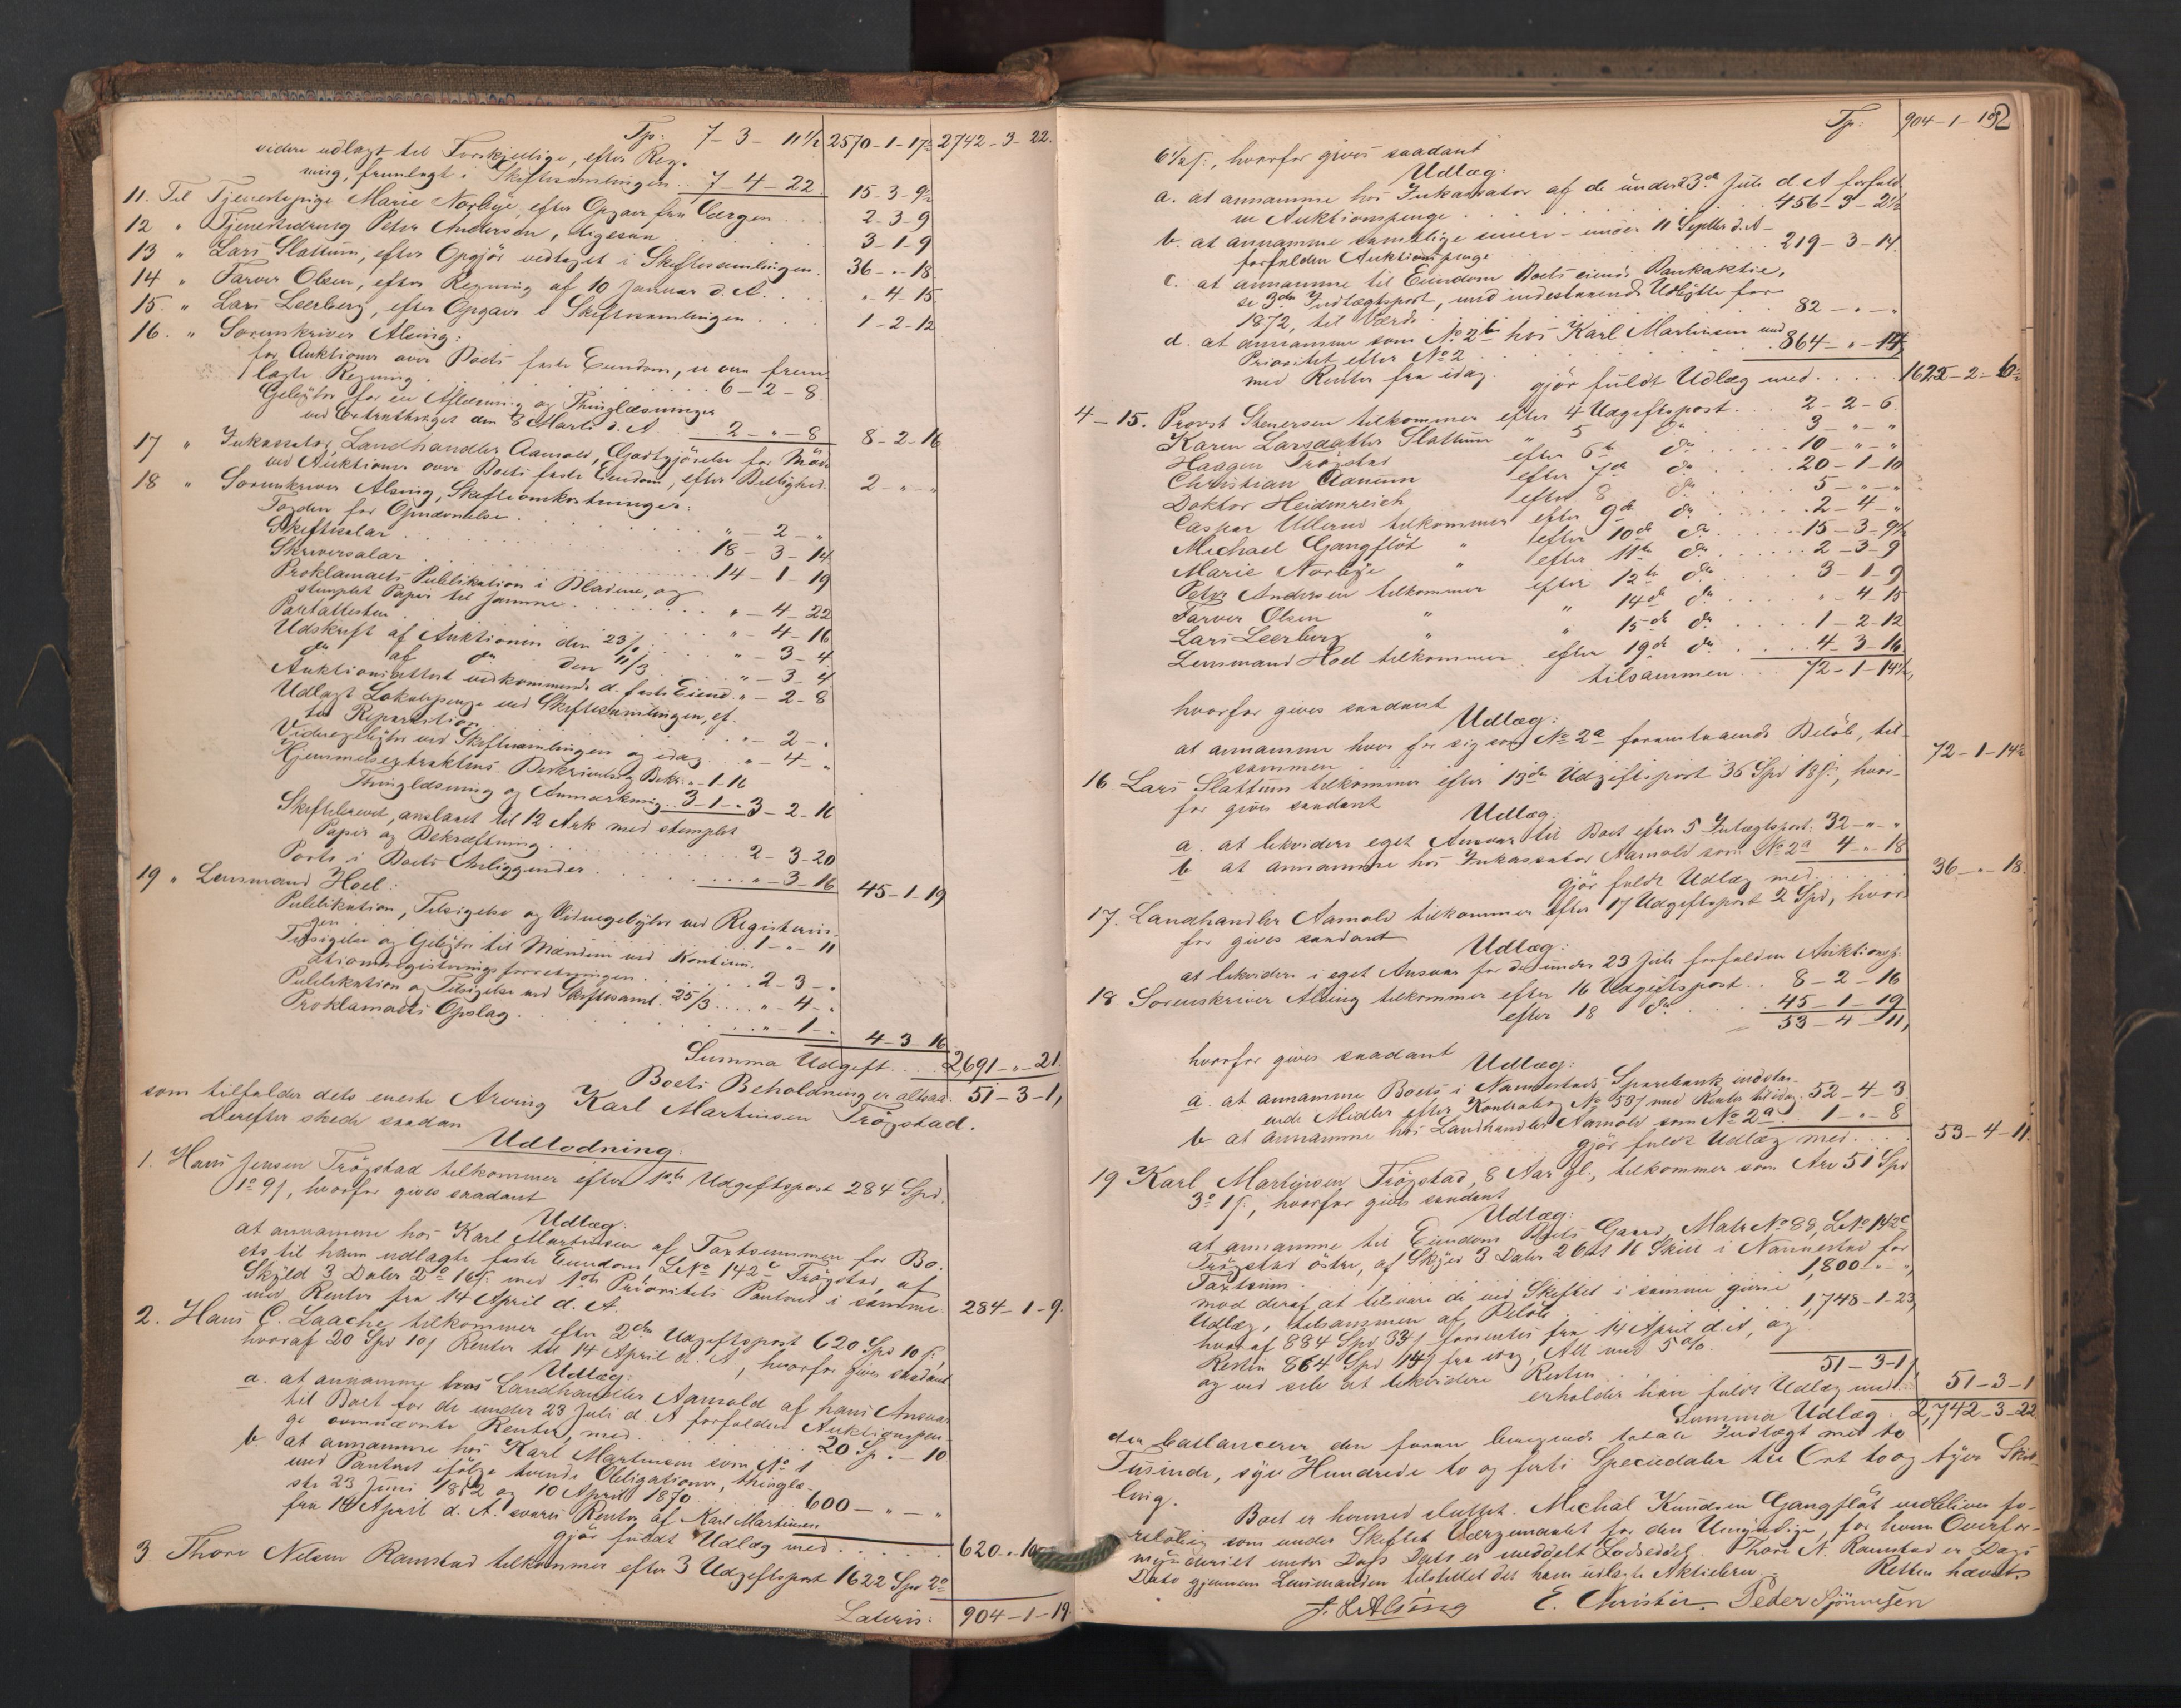 Tp: 7-3-11½ 2570-1-17½ 2742-3-22.
videre udlagt til Forskjellige, efter Reg-
ning, fremlagt i Skiftesamlingen. 7-4-22 15-3-9½
11. Til Tjenestepige Marie Norbye, efter Opgave fra Værgen . . . 2-3-9
12 " Tjenestedreng Peter Andersen, ligesaa . . . 3-1-9
13 " Lars Slattum, efter Opgjør vedtaget i Skiftesamlingen. 36-"-18
14 " Farver Olsen, efter Regning af 10 Januar d. A. . . . "-4-15
15. " Lars Leerberg, efter Opgave i Skiftesamlingen . . . 1-2-12
16. " Sorenskriver Alsing:
for Auktioner over Boets faste Eiendom, se oven frem-
lagte Regning . 6-2-8
Gebyhr for en Aflæsning og Thinglæsninger
ved Extrathinget den 8 Marts d. A. 2-"-8 8-2-16
17 " Inkassator Landhandler Aamold, Godtgjørelse for Møde
ved Auktioner over Boets faste Eiendom, efter Billighed. 2-"-"
18 " Sorenskriver Alsing, Skifteomkostninger:
Taxden for Opnævnelse . . . "-2-"
Skiftesalar . . . 18-3-14
Skriversalar . . . 14-1-19
Proklamaets Publikation i Bladene, og
stemplet Papir til samme . . . "-4-22
Pantattesten . . . "-4-16
Udskrift af Auktionen den 23/1 . . . "-3-4
do af do den 11/3 . . . "-3-4
Auktionsattest vedkommende d. faste Eiend. "-2-8
Udlagt Lokalepenge ved Skiftesamlingen, ef-
ter Repartition . . . "-2-"
Vidnegebyhr ved Skiftesamlingen og idag . "-4-"
Hjemmelsextraktens Beskrivelse og Bekr. "-1-16
Thinglæsning og Anmærkning. 3-1-" 3-2-16
Skiftebrevet, anslaaet til 12 Ark med stemplet
Papir og Bekræftning . . . 2-3-20
Porto i Boets Anliggender . . . "-3-16 45-1-19
19 " Lensmand Hoel:
Publikation, Tilsigelse og Vidnegebyhr ved Registerin-
gen 1-"-11
Tilsigelse og Gebyhr til Mændene ved Kontinu-
ationsregistreringsforretningen . . . 2-3-"
Publikation og Tilsigelse ved Skiftesaml. 25/3 . . . "-4-"
Proklamaets Opslag . . . "-1-" 4-3-16
Summa Udgift . . . 2,691-"-21.
Boets Beholdning er altsaa. 51-3-1,
som tilfalder dets eneste Arving Karl Martinsen Trøgstad.
Derefter skede saadan
Udlodning:
1. Hans Jensen Trøgstad tilkommer efter 1ste Udgiftspost 284 Spd.
1 o 9 s, hvorfor gives saadant
Udlæg:
at annamme hos Karl Martinsen af Taxtsummen for Bo-
ets til ham udlagte faste Eiendom LNo 142c Trøgstad, af
Skyld 3 Daler 2 o 16 s. med 1ste Prioritets Panteret i samme
med Renter fra 14 April d. A. 284-1-9.
2. Hans C. Laache tilkommer efter 2den Udgiftspost 620 Spd 10 s.
hvoraf 20 Spd 10 s Renter til 14 April d. A., hvorfor gives saadant
Udlæg:
a. at annamme hos Landhandler Aamold af hans Ansvar
til Boet for de under 23 Juli d. A. forfaldne Auktionspen-
ge ovennævnte Renter, med . . . 20 Sp. "-10
b. at annamme hos Karl Martinsen som No 1
med Panteret ifølge tvende Obligationer, thinglæ-
ste 23 Juni 1812 og 10 April 1870 . . . 600-"-"
fra 14 April d. A. svares Renter af Karl Martinsen
gjør fuldt Udlæg med . . . 620."-10
3 Thore Nilsen Ramstad tilkommer efter 3 Udgiftspost 1622 Spd 2 o
Lateris: 904-1-19.
Tp: 904-1-19 2
6½ s., hvorfor gives saadant
Udlæg:
a. at annamme hos Inkassator af de under 23de Juli d. A forfald-
ne Auktionspenge . . . 456-3-21½
b. at annamme samtlige senere - under 11 Septbr d. A-
forfaldne Auktionspenge . . . 219-3-14.
c. at annamme til Eiendom Boets eiende Bankaktie,
se 3de Indtægtspost, med indestaaende Udbytte for
1872, til Værdi . . . 82-"-"
d. at annamme som No 2b hos Karl Martinsen med
Prioritet efter No 2 . . . 864-"-14½
med Renter fra idag. gjør fuldt Udlæg med . . . 1622-2-6½
4-15. Provst Stenersen tilkommer efter 4 Udgiftspost . . . 2-2-6
Karen Larsdatter Slattum " 5 do . . . 3-"-"
Haagen Trøgstad efter 6te do . . . 10-"-"
Christian Aanum efter 7de do . . . 20-1-10
Doktor Heidenreich efter 8 do . . . 5-"-"
Caspar Ullerud tilkommer efter 9de do . . . 2-4-"
Michael Gangflöt " efter 10de do . . . 15-3-9½
Marie Norbye " efter 11te do . . . 2-3-9
Peter Andersen tilkommer efter 12te do . . . 3-1-9
Farver Olsen " " 14de do . . . "-4-15
Lars Leerberg " " 15de do . . . 1-2-12
Lensmand Hoel tilkommer efter 19de do . . . 4-3-16
tilsammen . . . 72-1-14½,
hvorfor gives saadant
Udlæg:
at annamme hver for sig som No 2a foranstaaende Beløb, til-
sammen 72-1-14½
16 Lars Slattum tilkommer efter 13de Udgiftspost 36 Spd 18 s., hvor-
for gives saadant
Udlæg:
a. at likvidere eget Ansvar til Boet efter 5 Indtægtspost. 32-"-"
b at annamme hos Inkassator Aamold som No 2a 4-"-18
gjør fuldt Udlæg med . . . 36-"-18.
17. Landhandler Aamold tilkommer efter 17 Udgiftspost 2 Spd, hvor-
for gives saadant
Udlæg:
at likvidere i eget Ansvar for de under 23 Juli forfaldne Auktionsp.
18 Sorenskriver Alsing tilkommer efter 16 Udgiftspost . . 8-2-16
efter 18 do . . . 45-1-19
53-4-11,
hvorfor gives saadant
Udlæg:
a. at annamme Boets i Nannestads Sparebank indsta-
ende Midler efter Kontrabog No 597 med Renter til idag. 52-4-3
b at annamme hos Landhandler Aamold som No 2a . . 1-"-8
gjør fuldt Udlæg med . . . 53-4-11.
19 Karl Martinsen Trøgstad, 8 Aar gl., tilkommer som Arv 51 Spd
3 o 1 s., hvorfor gives saadant
Udlæg:
at annamme til Eiendom Boets Gaard, Matr No 88, LNo 142c
Trøgstad østre, af Skyld 3 Daler 2 Ort 16 Skill i Nannestad for
Taxtsum . . . 1,800-"-"
mod deraf at tilsvare de ved Skiftet i samme givne
Udlæg, tilsammen af Beløb . . . 1,748-1-23½
hvoraf 884 Spd 33 s forrentes fra 14 April d. A, og
Resten 864 Spd 14½ s fra idag, Alt med 5 %.
og ved selv at likvidere Resten 51-3-1
erholder han fuldt Udlæg med . . 51-3-1
Summa Udlæg . 2,742-3-22
der ballancerer den foran beregnede totale Indtægt med to
Tusinde, syv Hundrede to og førti Speciedaler tre Ort to og tyve Skil-
ling.
Boet er hermed sluttet. Michal Knudsen Gangflöt vedbliver fo-
reløbig som under Skiftet Værgemaalet for den Umyndige, for hvem Overfor-
mynderiet under Dags Dato er meddelt Lodseddel. Thore N. Ramstad er Dags
Dato gjennem Lensmanden tilstillet det ham udlagte Aktiebrev. Retten hævet.
E. Christi Peder Sjønnesen